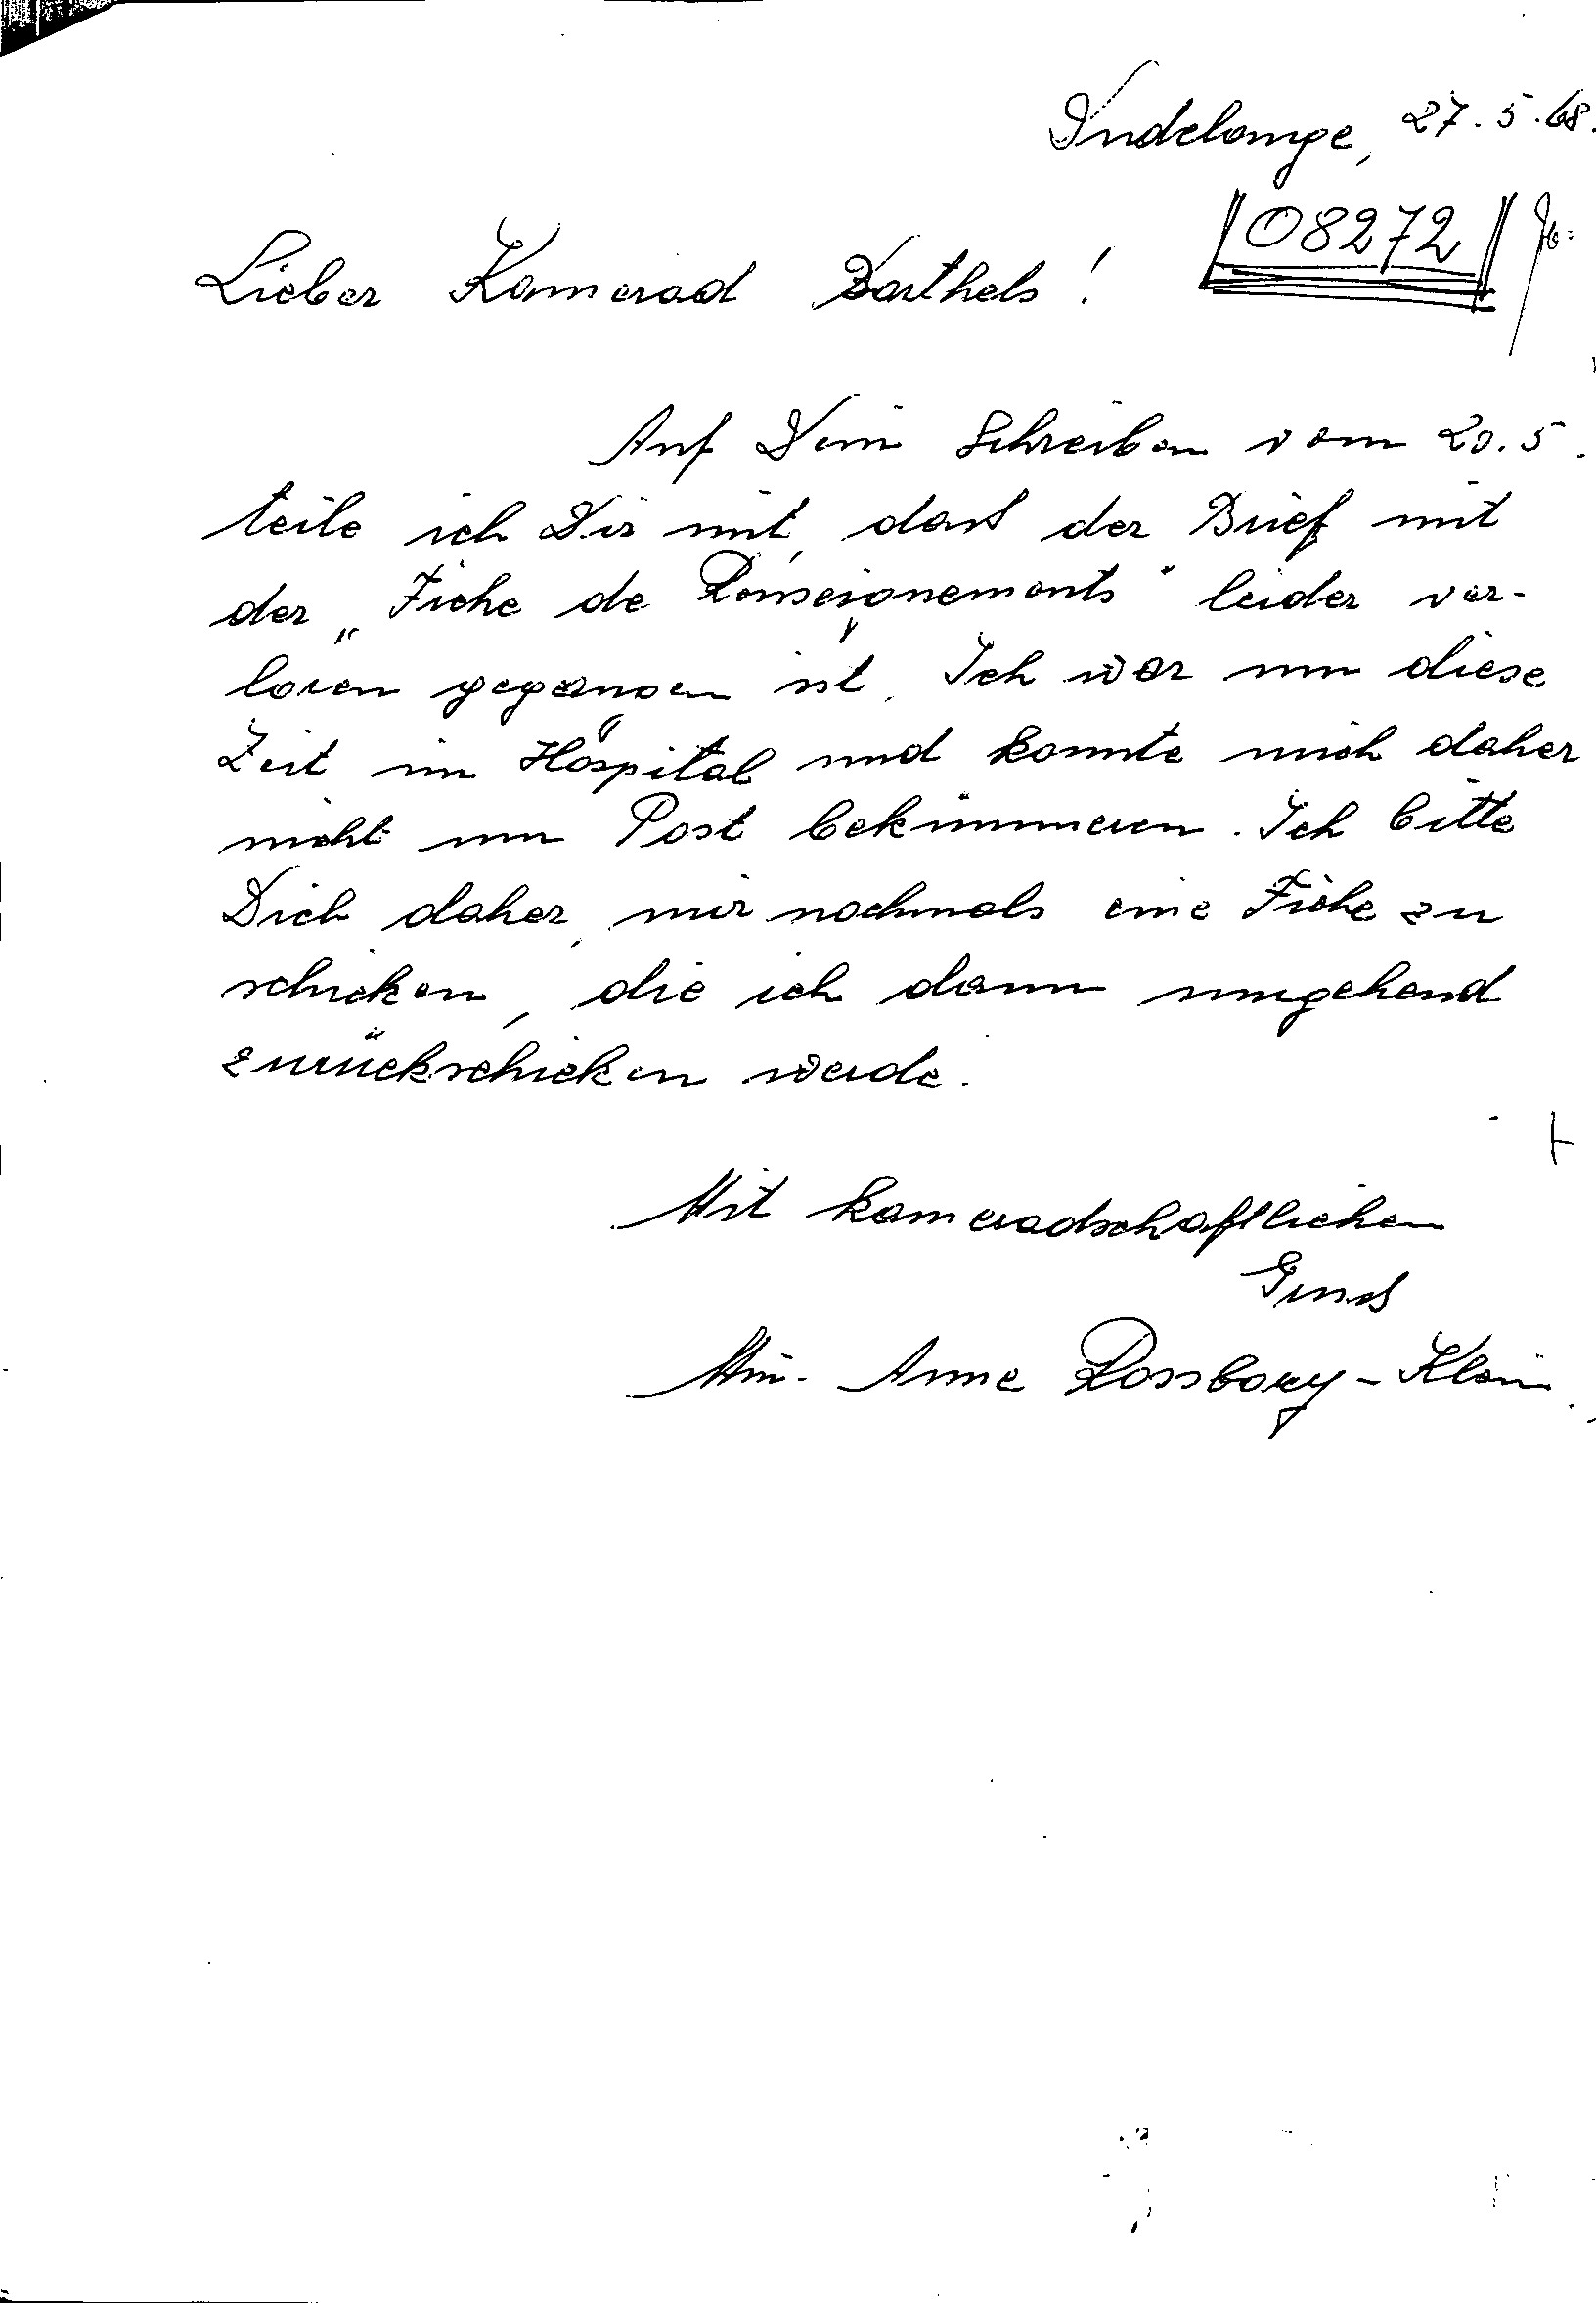 Dudelange, 27.5.68.
08272
Lieber Kamerad Barthels!
Auf Dein Schreiben vom 20.5.
teile ich Dir mit, dass der Brief mit
der „Fiche de Renseignements" leider ver-
loren gegangen ist. Ich war um diese
Zeit im Hospital und konnte mich daher
nicht um Post bekümmeren. Ich bitte
Dich daher, mir nochmals eine Fiche zu
schicken, die ich dann umgehend
zurückschicken werde.
Mit kameradschaftlichen
Gruss
Anne Rossbory-Klein